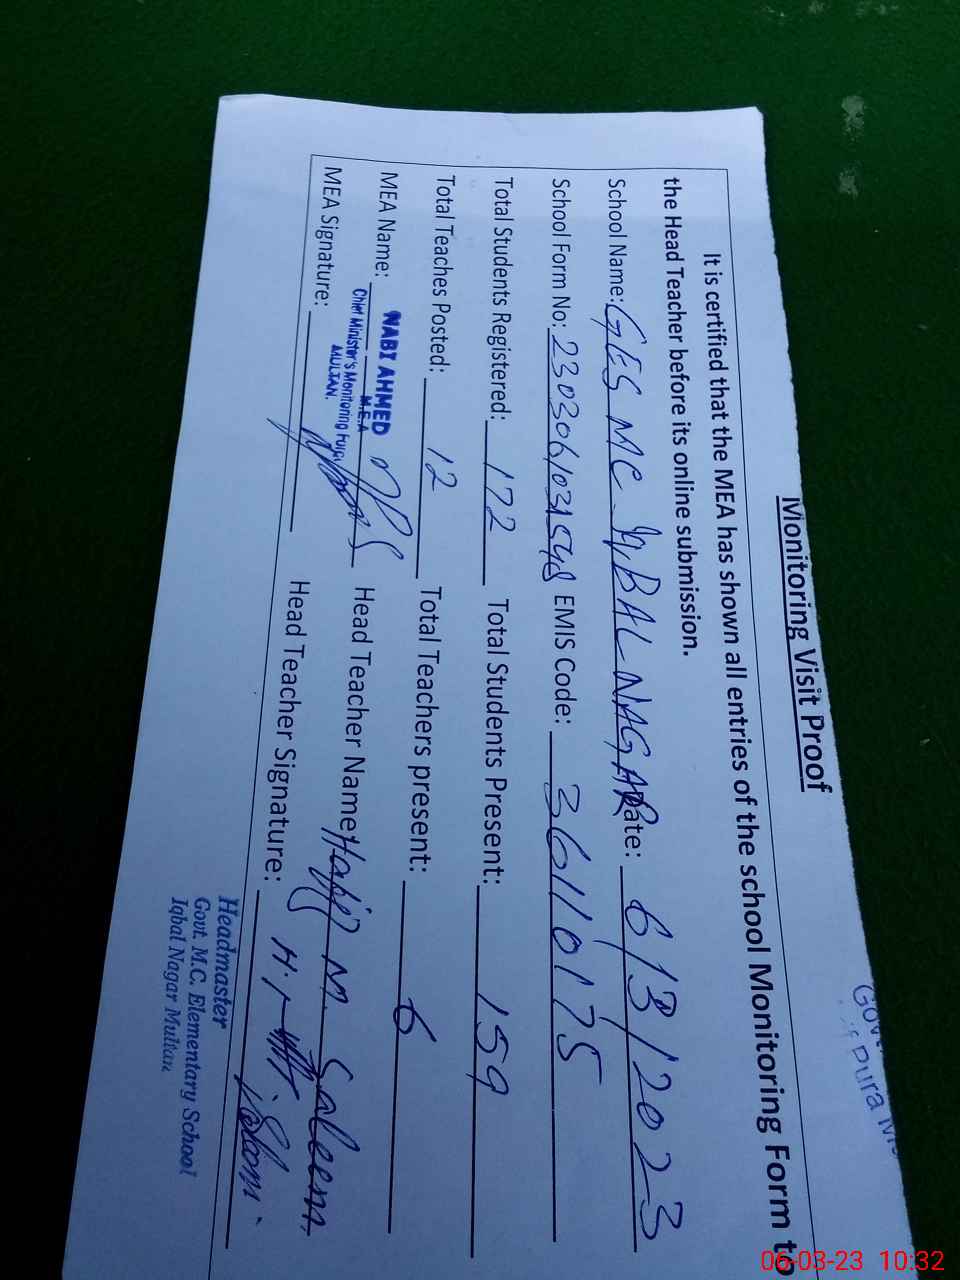 Monitoring Visit Proof
It is certified that the MEA has shown all entries of the school Monitoring Form to
the Head Teacher before its online submission.
School Name: GES MC IqBAL NAGAR Date: 6/3/2023
School Form No: EMIS Code: 36110175
Total Students Registered: 172 Total Students Present: 159
Total Teaches Posted: 12 Total Teachers present: 6
MEA Name: NABI AHMED Head Teacher Name: Hafiz M. Saleem
M.E.A
Chief Minister's Monitoring
MULTAN.
MEA Signature: Head Teacher Signature:
Headmaster
Govt. M.C. Elementary School
Iqbal Nagar Multan
Pura
06-03-23 10:32